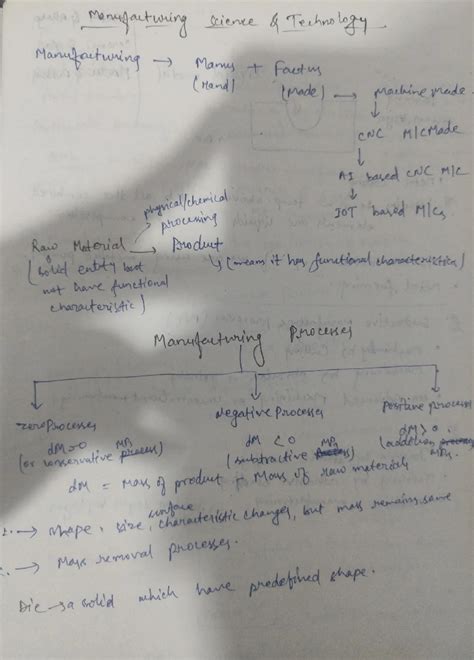 Manufacturing Science & Technology
Manufacturing → Manus + Factus
(Hand) (Made) → Machine made.
↓
CNC M/C Made
↓
AI based CNC M/C
↓
IOT based M/Cs
physical/chemical
processing
Raw Material → Product
(solid entity but
not have functional
characteristic)
↳ (means it has functional characteristics)
Manufacturing Processes
zero Processes
dM=0
(or conservative process) MPs
Negative Processes
dM < 0
(subtractive process) MPs
Positive process
dM > 0
(addition process) MPs
dM = Mass of product - Mass of raw materials
→ shape, size, surface characteristic changes, but mass remains same
→ Mass removal processes.
Die → a solid which have predefined shape.